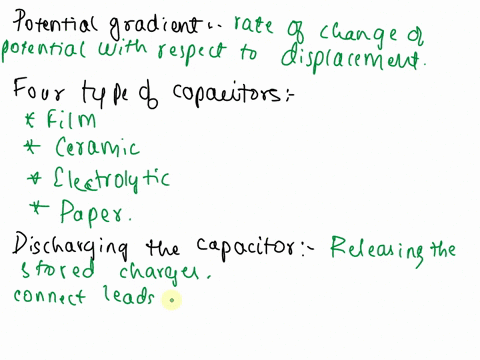 Potential gradient :- rate of change of
potential with respect to displacement.
Four type of capacitors:-
* Film
* Ceramic
* Electrolytic
* Paper.
Discharging the capacitor:- Releasing the
stored charges.
connect leads